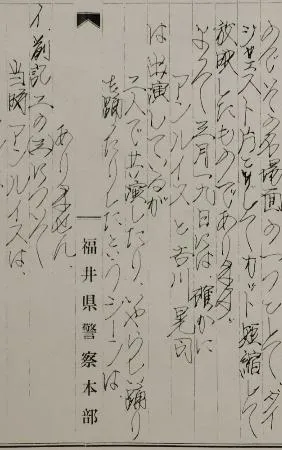 ので、その名場面の一つとして、ダイ
ジェスト片としてカット短縮して
放映したものであります。
よって三月一九日には確かに
アンルイスと吉川晃司
は出演しているが
二人で共演したり、いやらしい踊り
を踊ったりしたというシーンは、
福井県警察本部
ありません。
イ.前記二の点について
当時アンルイスは、